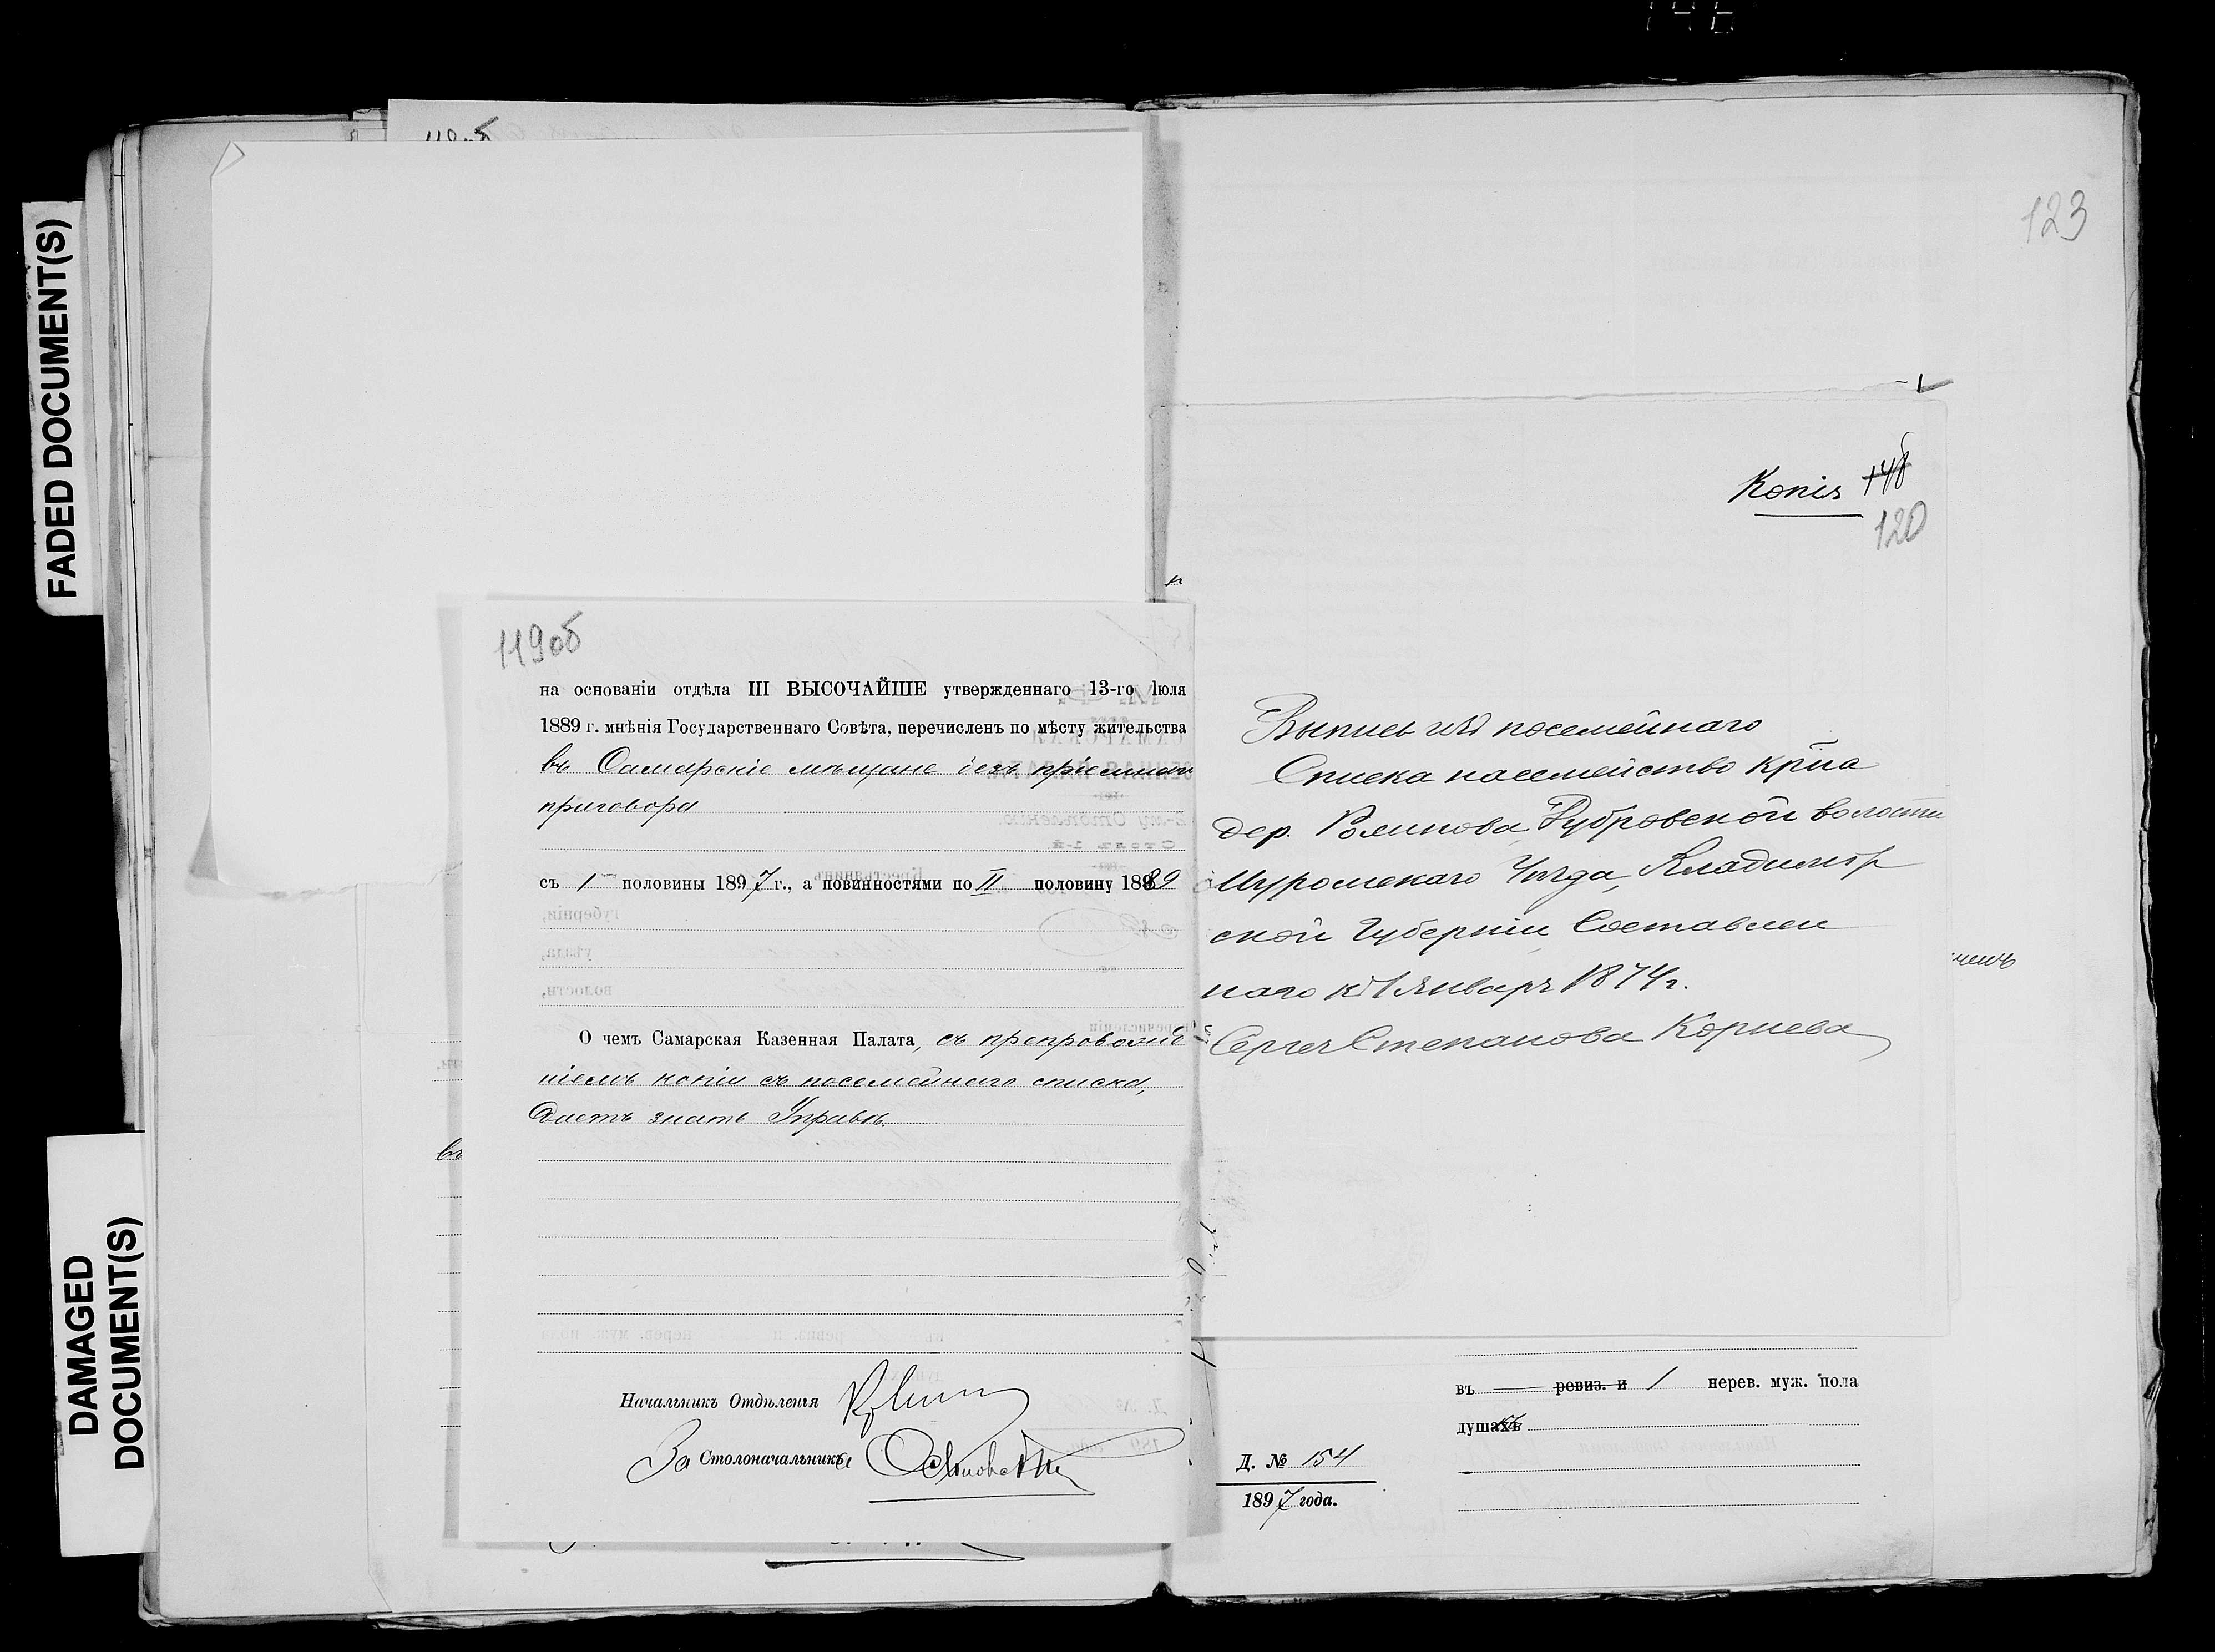 FADED DOCUMENT(S)
DAMAGED
DOCUMENT(S)
119об
на основаніи отдѣла III ВЫСОЧАЙШЕ утвержденнаго 13-го Іюля
1889 г. мнѣнія Государственнаго Совѣта, перечисленъ по мѣсту жительства
въ Самарскіе мѣщане безъ пріемнаго
приговора
съ 1 половины 1897 г., а повинностями по II половину 1889
О чемъ Самарская Казенная Палата, съ препровожде
ніемъ копіи съ посемейнаго списка,
даетъ знать Управѣ.
Начальникъ Отдѣленія
За Столоначальника
123
Копія 148
120
Выпись изъ посемейнаго
Списка на семейство кр̃на
дер. Дубровской волости
Муромскаго Уѣзда, Владимір
ской Губерніи Составлен
наго къ 1 Января 1874 г.
Сергея Степанова Корнева
въ ревиз. и 1 нерев. муж. пола
душахъ
Д. № 154
1897 года.